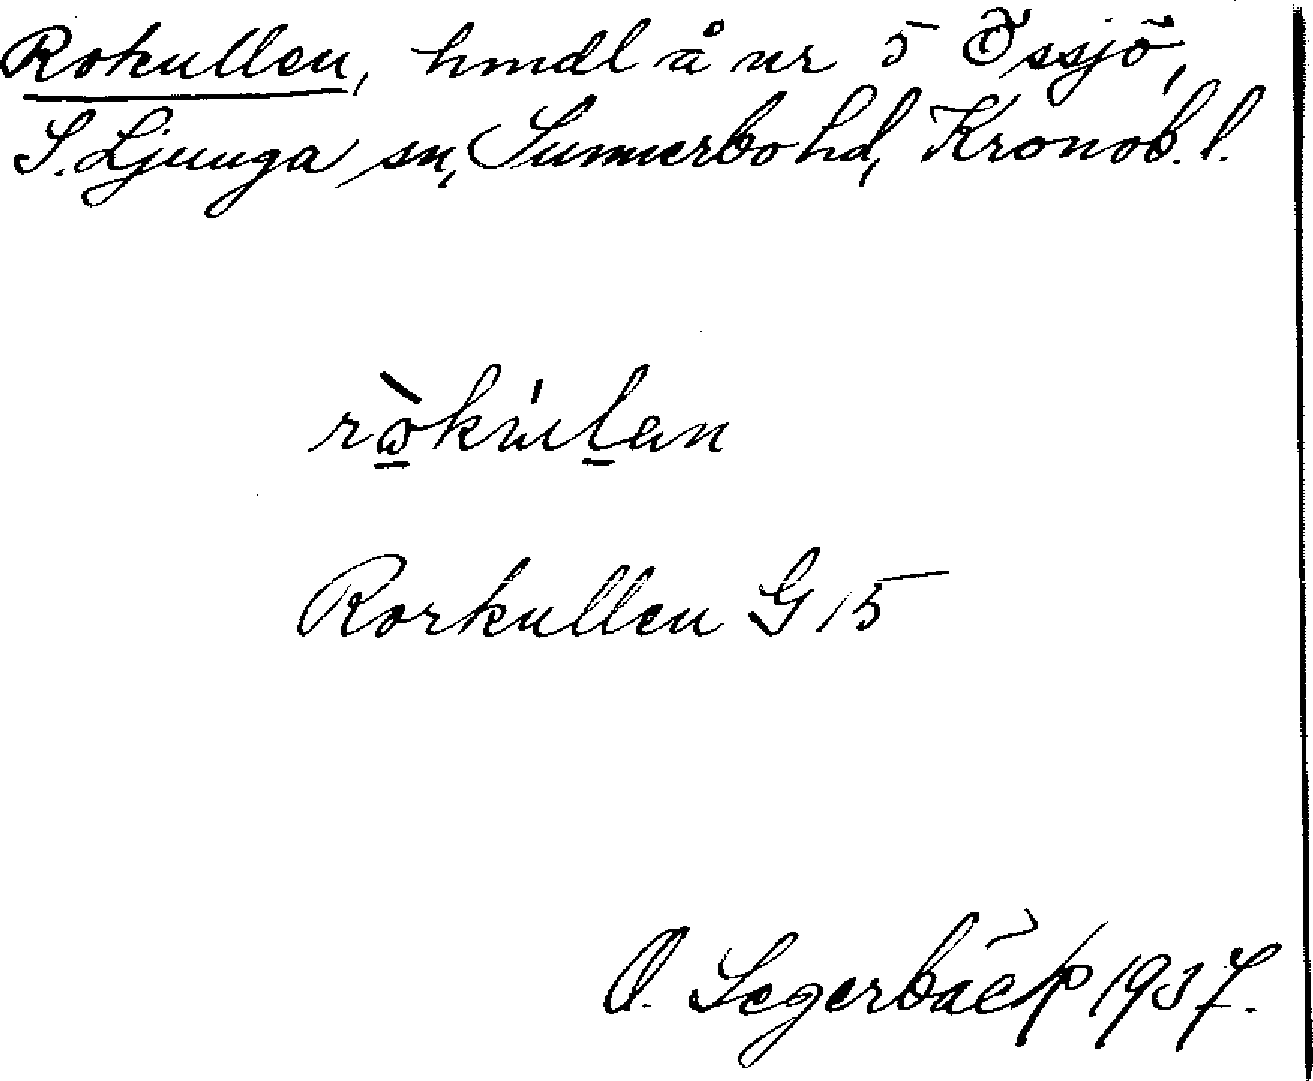 Rokullen, hmdl å nr 5 Össjö,
S. Ljunga sn, Sunnerbo hd, Kronob. l.
Rorkullen G 15
O. Segerbäck 1937.